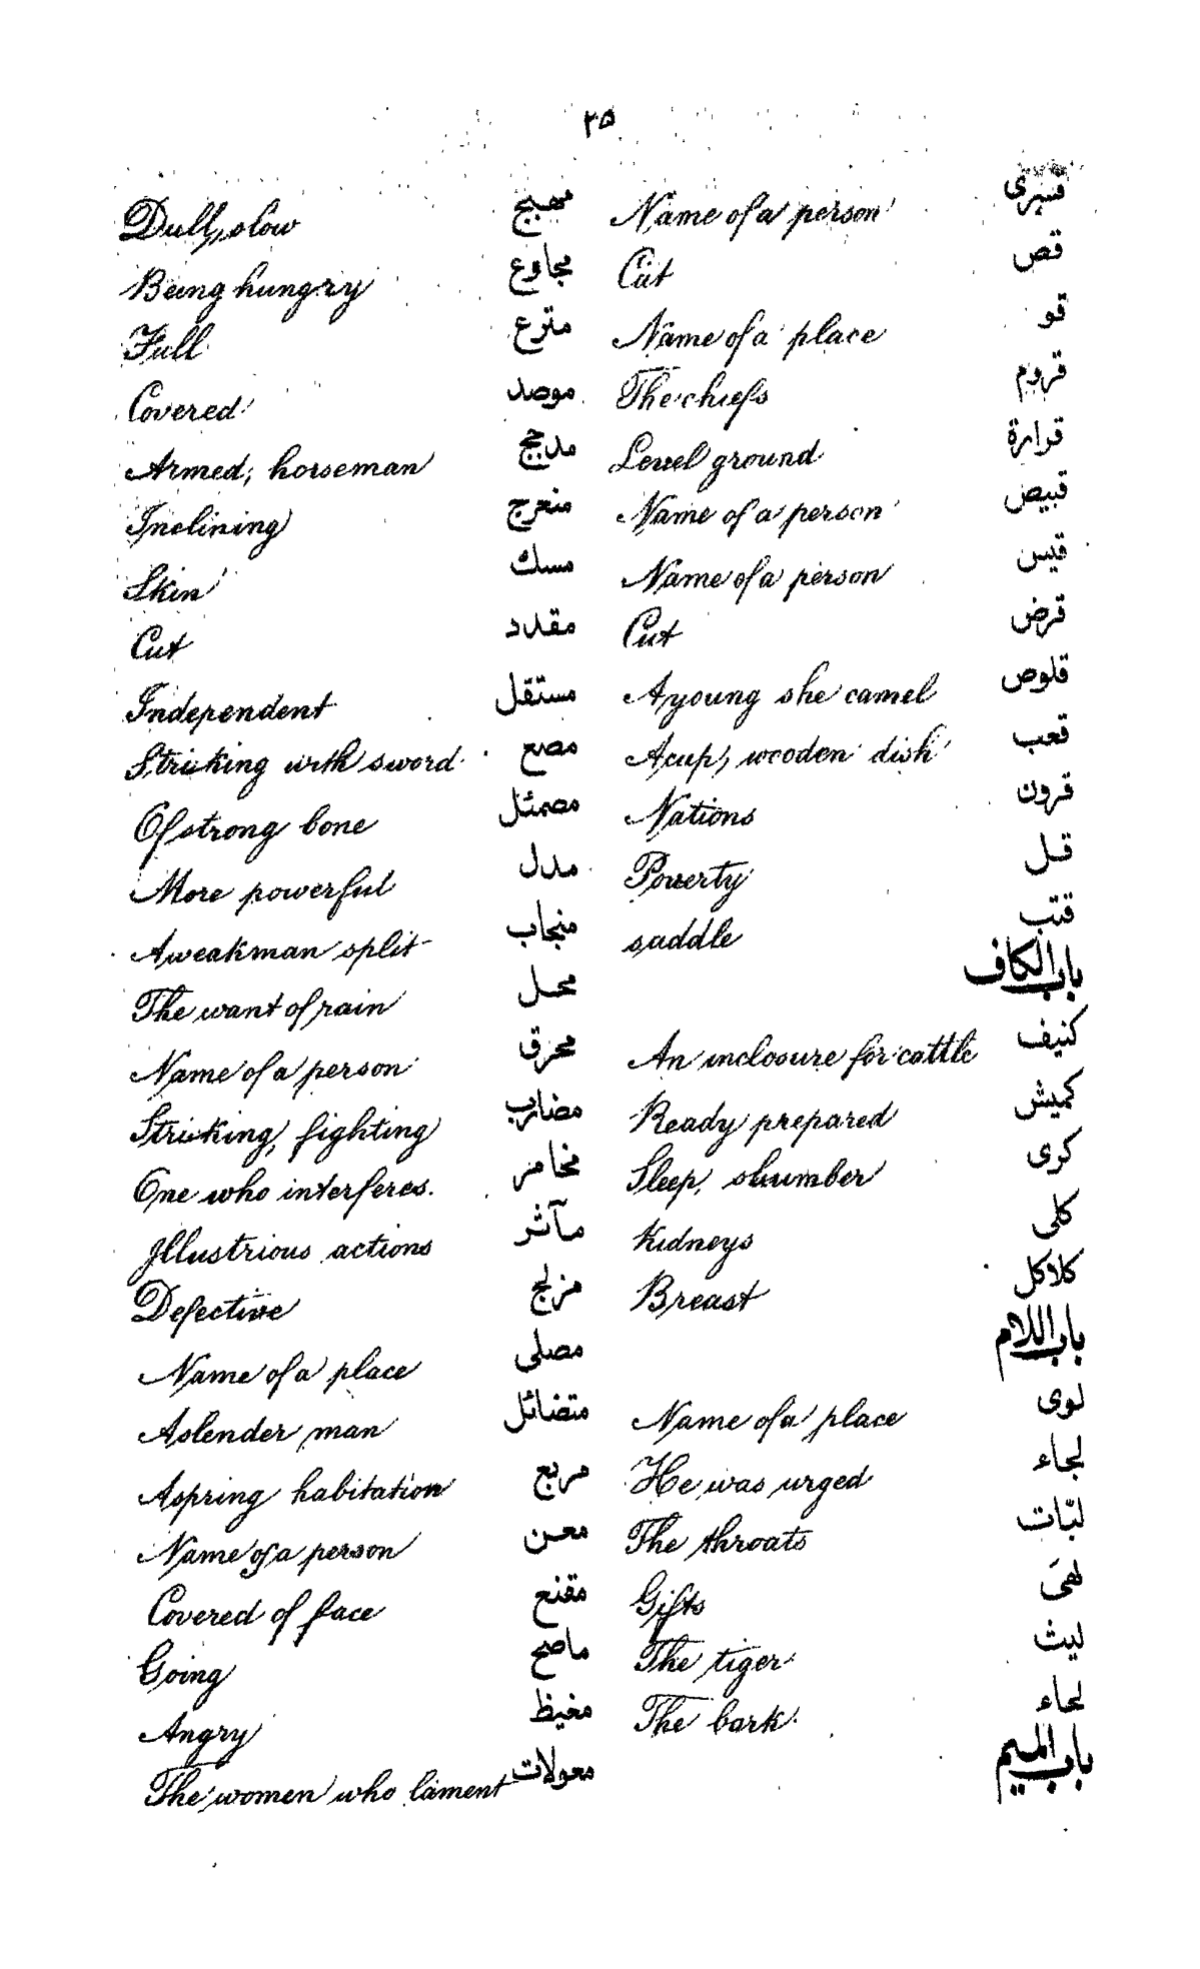 ٣٥
قسرى Name of a person
قص Cut
قو Name of a place
قروم The chiefs
قرارة Level ground
قبيص Name of a person
قيس Name of a person
قرض Cut
قلوص A young she camel
قعب A cup, wooden dish
قرون Nations
قل Poverty
قتب saddle
باب الكاف
كنيف An inclosure for cattle
كميش Ready prepared
كرى Sleep, slumber
كلى Kidneys
كلاكل Breast
باب اللام
لوى Name of a place
لجاء He was urged
لبّات The throats
لهىَ Gifts
ليث The tiger
لحاء The bark
باب الميم
Dull, slow
مجاوع Being hungry
مترع Full
موصد Covered
مدجج Armed, horseman
منعرج Inclining
مسك Skin
مقدد Cut
مستقل Independent
مصع Striking with sword
مصمئل Of strong bone
مدل More powerful
منجاب A weak man split
محل The want of rain
محرق Name of a person
مضارب Striking, fighting
مخامر One who interferes.
مآثر Illustrious actions
مزلج Defective
مصلى Name of a place
متضائل A slender man
مربع A spring habitation
معن Name of a person
مقنع Covered of face
ماصح Going
مغيظ Angry
معولات The women who lament